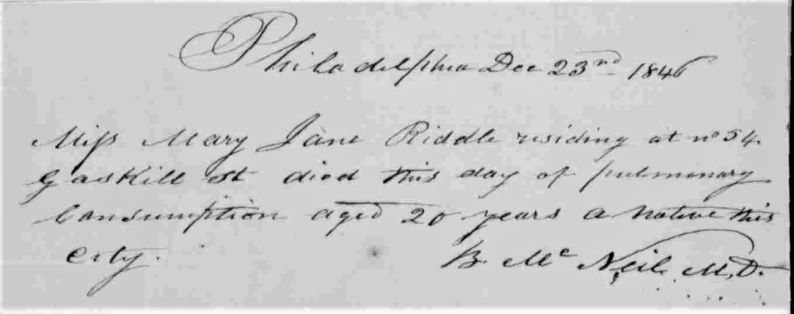 Philadelphia Dec 23rd 1846
Miss Mary Jane Riddle residing at no 54
Gaskill st died this day of pulmonary
Consumption aged 20 years a native this
City.
B. McNeil M,D.